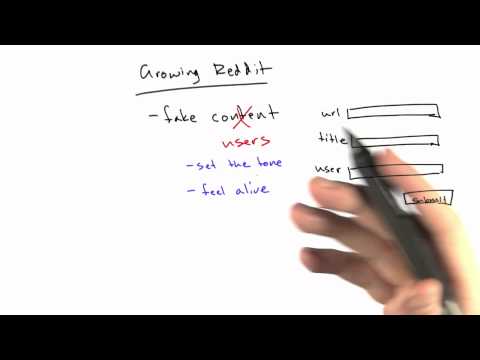 Growing Reddit
- fake content
users
- set the tone
- feel alive
url
title
user
submit